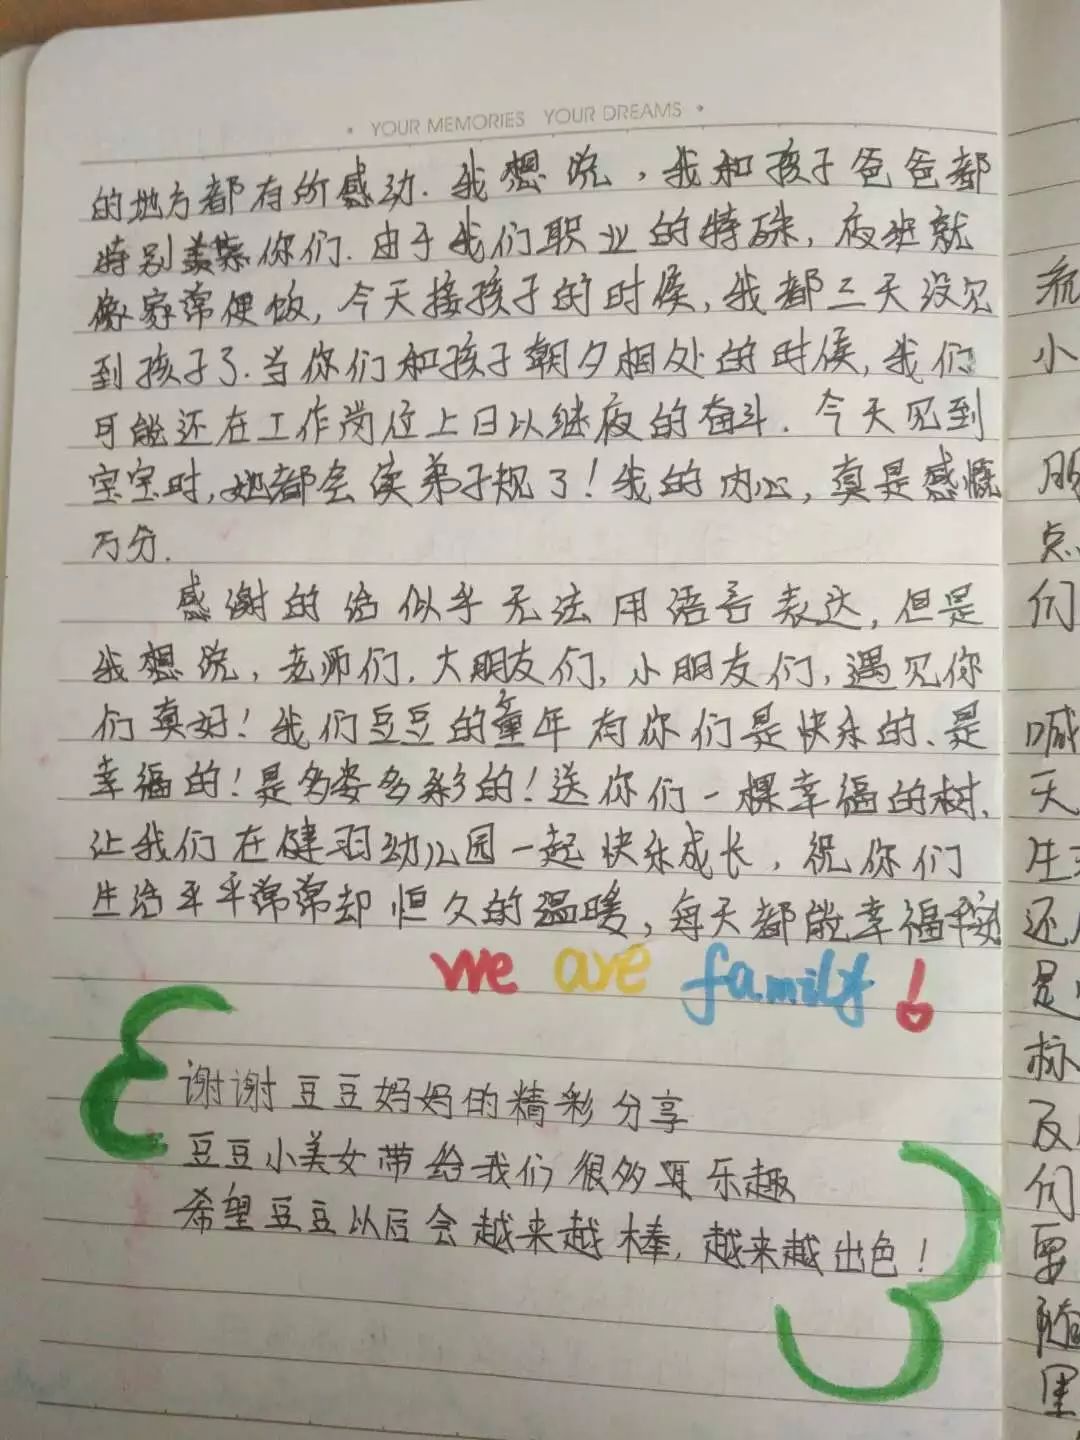 YOUR MEMORIES YOUR DREAMS
的地方都有所感动.我想说,我和孩子爸爸都
特别羡慕你们.由于我们职业的特殊,夜班就
像家常便饭,今天接孩子的时候,我都三天没见
到孩子了.当你们和孩子朝夕相处的时候,我们
可能还在工作岗位上日以继夜的奋斗.今天见到
宝宝时,她都会读弟子规了!我的内心,真是感慨
万分.
感谢的话似乎无法用语言表达,但是
我想说,老师们,大朋友们,小朋友们,遇见你
们真好!我们豆豆的童年有你们是快乐的、是
幸福的!是多姿多彩的!送你们一棵幸福的树、
让我们在健羽幼儿园一起快乐成长,祝你们
生活平平常常却恒久的温暖,每天都能幸福
we are family!
谢谢豆豆妈妈的精彩分享
豆豆小美女带给我们很多乐趣
希望豆豆以后会越来越棒,越来越出色!
小
点
们
喊
天
还
是
标
们
要
随
里